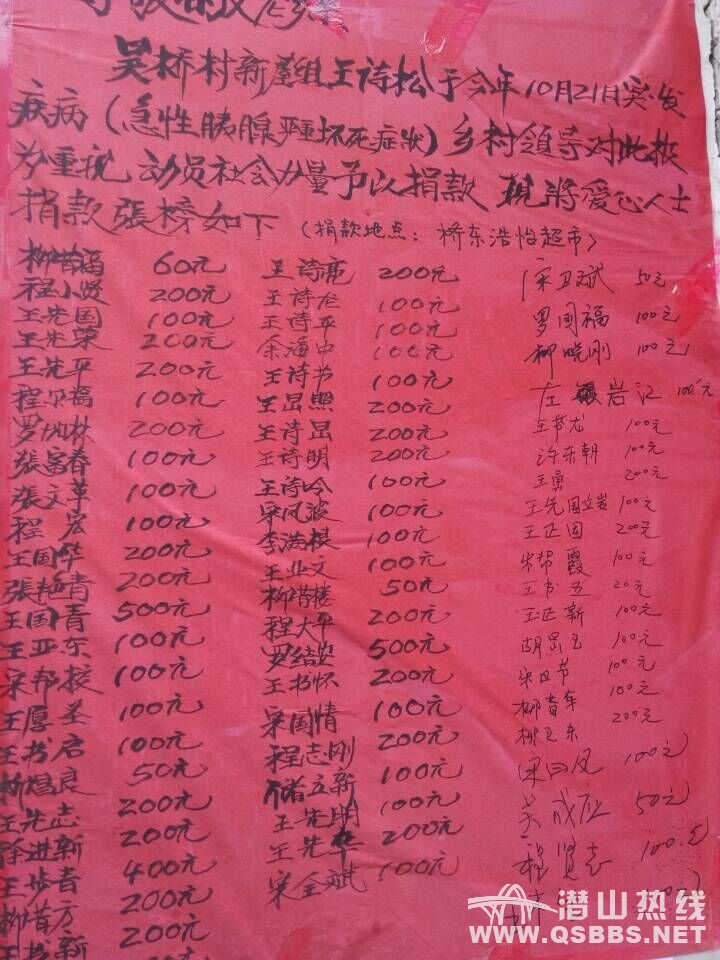 吴桥村新屋组王诗松于今年10月21日突发
疾病(急性胰腺严重坏死症状)乡村领导对此极
为重视,动员社会力量予以捐款 现將爱心人士
捐款張榜如下(捐款地点:桥东浩怡超市)
柳惜福 60元 王诗亮 200元 宋卫斌 50元
程小贤 200元 王诗龙 100元 罗国福 100元
王先国 100元 王诗平 100元 柳晓刚 100元
王先荣 200元 余海中 100元 左 岩江 100元
王先平 200元 王诗书 100元 王书尤 100元
程 福 100元 王昌照 200元 许东朝 100元
罗 林 200元 王诗昌 200元 王勇 200元
張富春 100元 王诗明 200元 王先国 100元
張文革 100元 王诗吟 100元 王正国 200元
程宏 100元 宋凤波 100元 宋帮霞 100元
王国华 200元 李满根 100元 王书五 20元
張艳青 200元 王业文 100元 王正新 100元
王国青 500元 柳惜楼 50元 胡昌玉 100元
王亚东 100元 程大平 200元 宋 节 100元
宋邦校 100元 罗结安 500元 柳青车 100元
王愿圣 100元 王书怀 200元 柳卫东 200元
王书启 100元 宋国情 100元 宋 凤 100元
柳煜良 50元 程志刚 200元 成 50元
王先志 200元 储立新 100元 程贤志 100元
徐进新 200元 王先明 100元
王步青 400元 王先华 200元
柳惜方 200元 宋全斌 100元
王书新 200元
潜山热线
WWW.QSBBS.NET